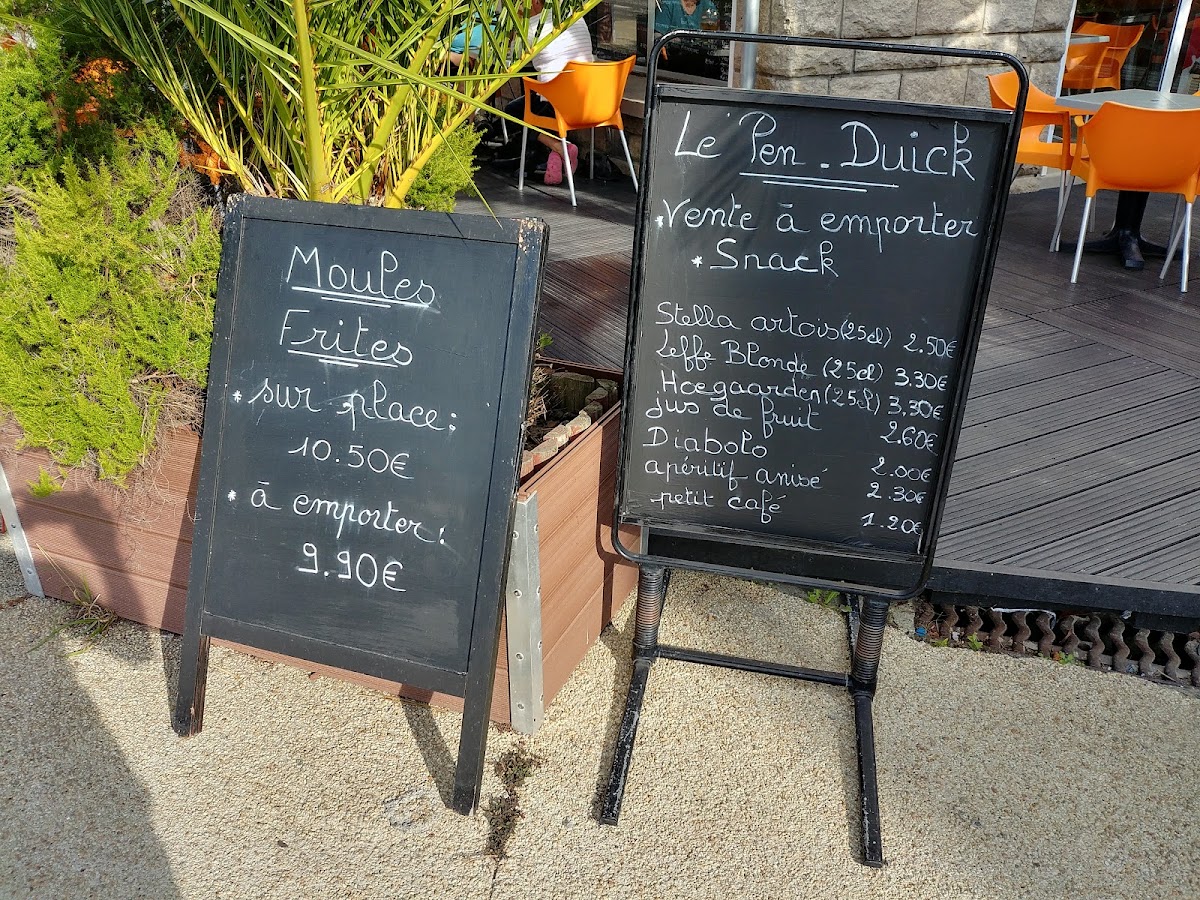 Moules
Frites
* sur place :
10.50€
* à emporter :
9.90€
Le Pen-Duick
* Vente à emporter
* Snack
Stella artois (25cl) 2.50€
Leffe Blonde (25cl) 3.30€
Hoegaarden (25cl) 3,30€
jus de fruit 2.60€
Diabolo 2.00€
apéritif anisé 2.30€
petit café 1.20€